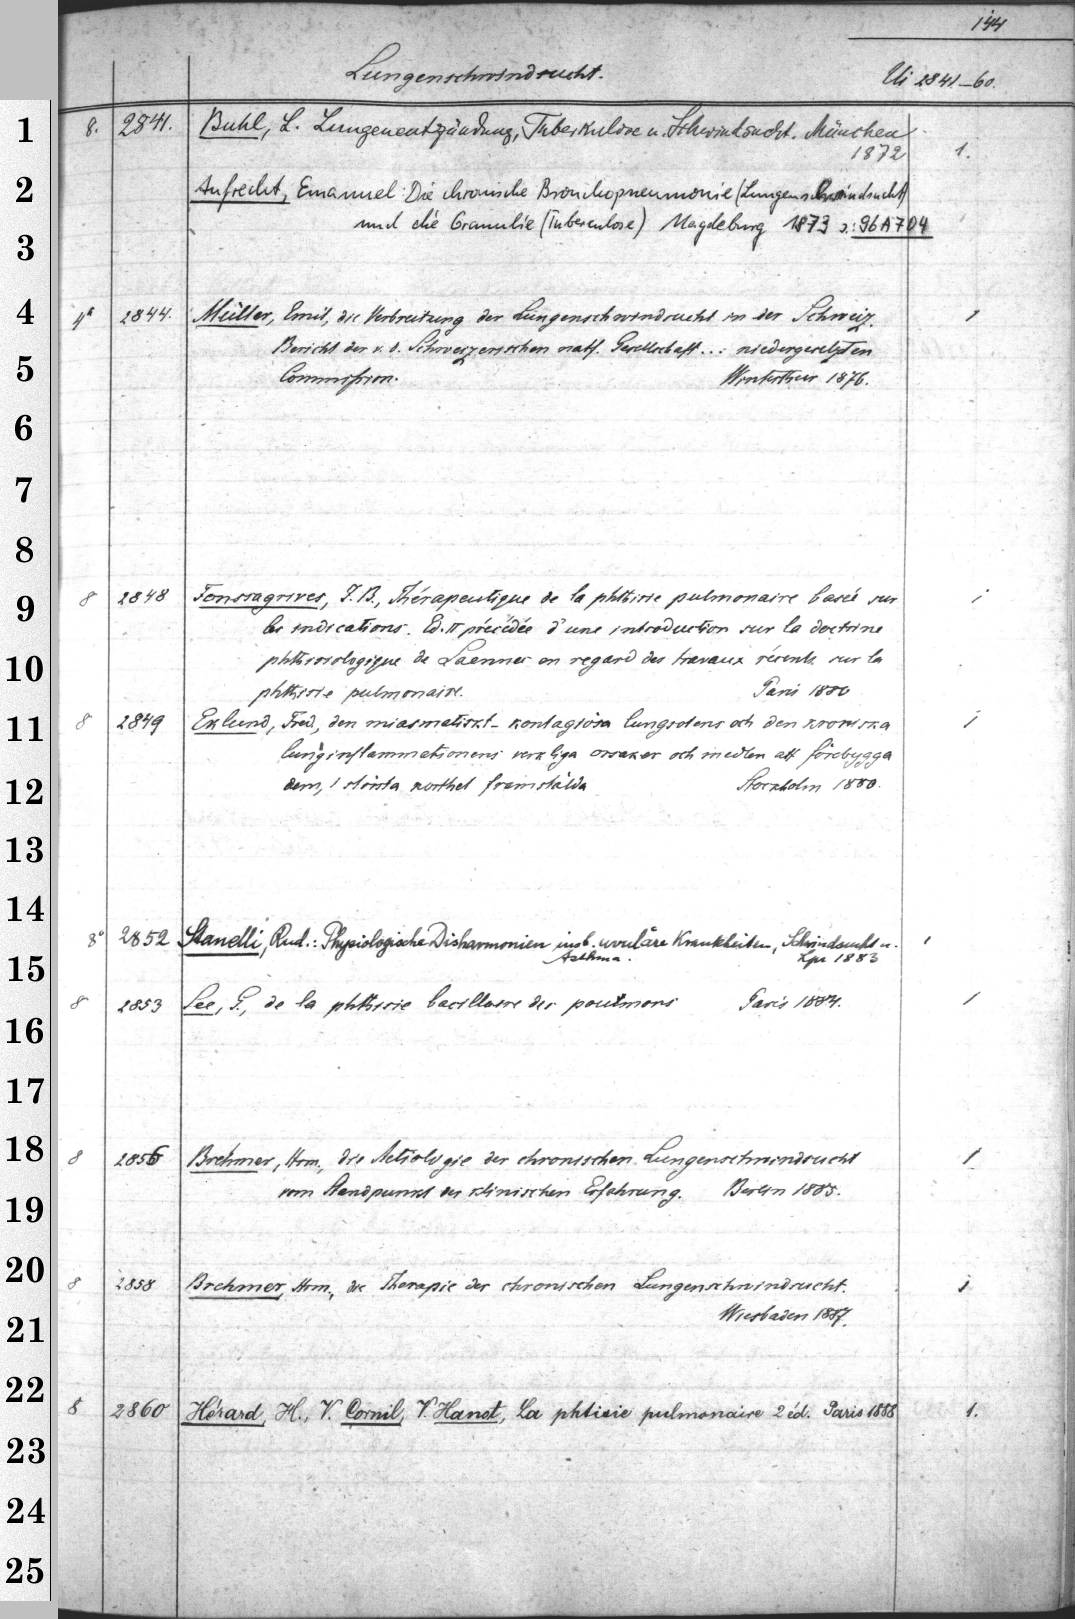 144
Lungenschwindsucht. Ui 2841-60.
1 8. 2841. Buhl, L. Lungenentzündung, Tuberkulose u. Schwindsucht. München
1872 1.
2 Aufrecht, Emanuel: Die chronische Bronchopneumonie (Lungenschwindsucht)
3 und die Granulie (Tuberculose) Magdeburg 1873 s.: 96 A 704
4 4° 2844. Müller, Emil, die Verbreitung der Lungenschwindsucht in der Schweiz. 1
Bericht der v. d. Schweizerischen natf. Gesellschaft... niedergesetzten
5 Commission. Winterthur 1876.
6
7
8
9 8 2848 Fonssagrives, J. B., Thérapeutique de la phthisie pulmonaire basée sur 1
les indications. Ed. II précédée d'une introduction sur la doctrine
10 phthisiologique de Laennec en regard des travaux récents sur la
phthisie pulmonaire. Paris 1880
11 8 2849 Eklund, Fred, den miasmatiskt-kontagiösa lungsotens och den kroniska 1
lunginflammationens verkliga orsaker och medlen att förebygga
12 dem, i största korthet framstälda Stockholm 1880.
13
14
8° 2852 Stanelli, Rud.: Physiologische Disharmonien insb. uvuläre Krankheiten, Schwindsucht u. 1
15 Asthma. Lpz 1883
8 2853 See, G., de la phthisie bacillaire des poulmons Paris 1884. 1
16
17
18 8 2856 Brehmer, Hrm., die Aetiologie der chronischen Lungenschwindsucht 1
19 vom Standpunkt der klinischen Erfahrung. Berlin 1885.
20 8 2858 Brehmer, Hrm., die Therapie der chronischen Lungenschwindsucht. 1
21 Wiesbaden 1887.
22 8 2860 Hérard, H., V. Cornil, V. Hanot, La phtisie pulmonaire 2 éd. Paris 1888 1.
23
24
25